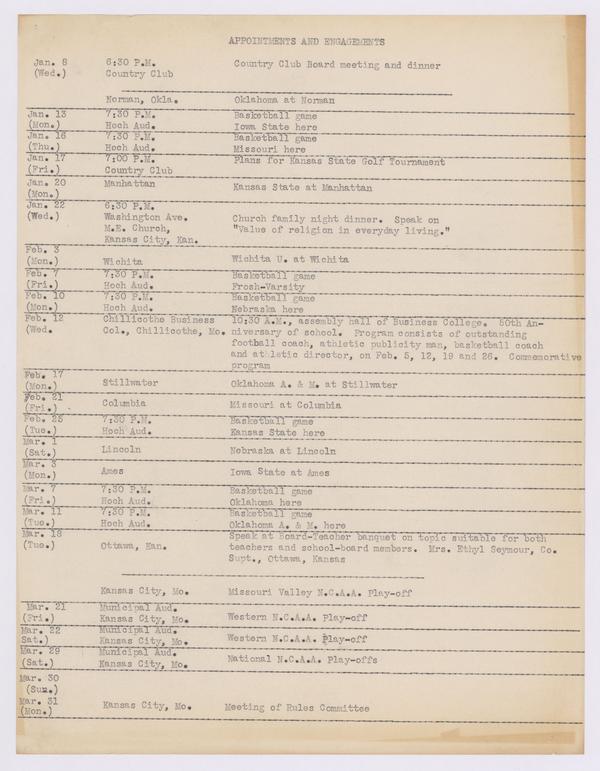 APPOINTMENTS AND ENGAGEMENTS
Jan. 8 6:30 P.M. Country Club Board meeting and dinner
(Wed.) Country Club
Norman, Okla. Oklahoma at Norman
Jan. 13 7:30 P.M. Basketball game
(Mon.) Hoch Aud. Iowa State here
Jan. 16 7:30 P.M. Basketball game
(Thu.) Hoch Aud. Missouri here
Jan. 17 7:00 P.M. Plans for Kansas State Golf Tournament
(Fri.) Country Club
Jan. 20 Manhattan Kansas State at Manhattan
(Mon.)
Jan. 22 6:30 P.M.
(Wed.) Washington Ave. Church family night dinner. Speak on
M.E. Church, "Value of religion in everyday living."
Kansas City, Kan.
Feb. 3
(Mon.) Wichita Wichita U. at Wichita
Feb. 7 7:30 P.M. Basketball game
(Fri.) Hoch Aud. Frosh-Varsity
Feb. 10 7:30 P.M. Basketball game
(Mon.) Hoch Aud. Nebraska here
Feb. 12 Chillicothe Business 10:30 A.M., assembly hall of Business College. 50th An-
(Wed. Col., Chillicothe, Mo. niversary of school. Program consists of outstanding
football coach, athletic publicity man, basketball coach
and athletic director, on Feb. 5, 12, 19 and 26. Commemorative
program
Feb. 17
(Mon.) Stillwater Oklahoma A. & M. at Stillwater
Feb. 21
(Fri.) Columbia Missouri at Columbia
Feb. 25 7:30 P.M. Basketball game
(Tue.) Hoch Aud. Kansas State here
Mar. 1
(Sat.) Lincoln Nebraska at Lincoln
Mar. 3
(Mon.) Ames Iowa State at Ames
Mar. 7 7:30 P.M. Basketball game
(Fri.) Hoch Aud. Oklahoma here
Mar. 11 7:30 P.M. Basketball game
(Tue.) Hoch Aud. Oklahoma A. & M. here
Mar. 18 Speak at Board-Teacher banquet on topic suitable for both
(Tue.) Ottawa, Kan. teachers and school-board members. Mrs. Ethyl Seymour, Co.
Supt., Ottawa, Kansas
Kansas City, Mo. Missouri Valley N.C.A.A. Play-off
Mar. 21 Municipal Aud.
(Fri.) Kansas City, Mo. Western N.C.A.A. Play-off
Mar. 22 Municipal Aud.
Sat.) Kansas City, Mo. Western N.C.A.A. Play-off
Mar. 29 Municipal Aud.
(Sat.) Kansas City, Mo. National N.C.A.A. Play-offs
Mar. 30
(Sun.)
Mar. 31
(Mon.) Kansas City, Mo. Meeting of Rules Committee